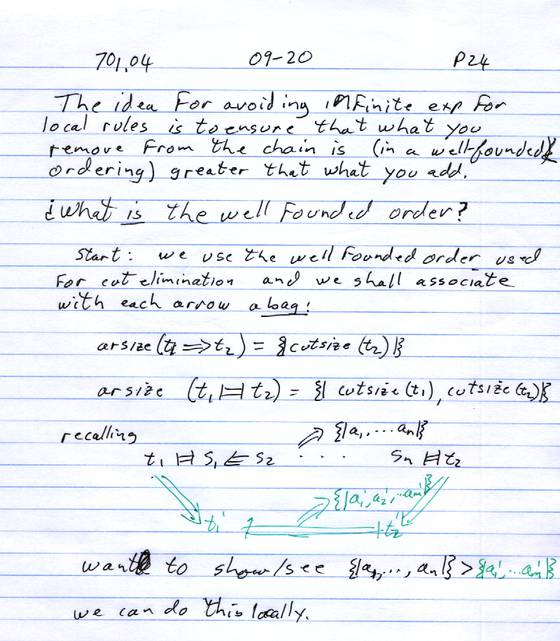 701.04 09-20 P24
The idea for avoiding infinite exp for
local rules is to ensure that what you
remove from the chain is (in a well-founded
ordering) greater that what you add.
¿What is the well founded order?
Start: we use the well founded order used
for cut elimination and we shall associate
with each arrow a bag:
arsize(t₁ ⟹ t₂) = {|cutsize(t₂)|}
arsize (t₁ |=| t₂) = {| cutsize(t₁), cutsize(t₂)|}
recalling {|a₁, ... aₙ|}
t₁ |=| s₁ ⇐ s₂ . . . sₙ |=| t₂
{|a₁', a₂', ... aₘ'|}
t₁' t₂'
want to show/see {|a₁, ..., aₙ|} > {|a₁', ... aₘ'|}
we can do this locally.